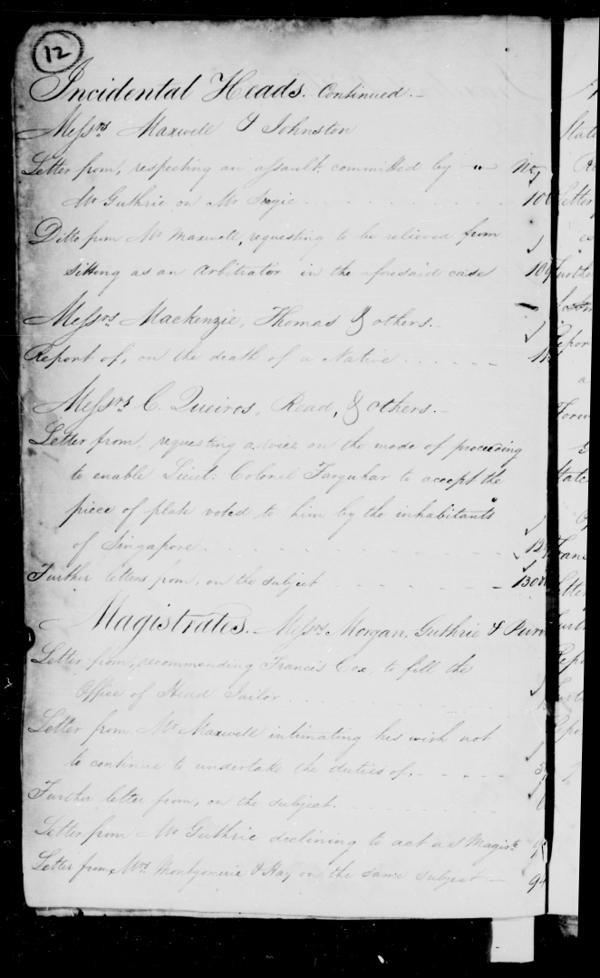 12
Incidental Heads. Continued.—
Messrs Maxwell & Johnston
Letter from, respecting an assault, committed by No
Mr Guthrie on Mr 10
Ditto from Mr Maxwell, requesting to be relieved from
sitting as an Arbitrator in the aforesaid case 109
Messrs Mackenzie, Thomas & others.—
Report of, on the death of a Native
Messrs C. Queiros, Read, & others.—
Letter from, requesting advice on the mode of proceeding
to enable Lieut: Colonel Farquhar to accept the
piece of plate voted to him by the inhabitants
of Singapore 12
Further letters from, on the subject 130
Magistrates. Messrs Morgan, Guthrie &
Letter from, recommending Francis Cox, to fill the
Office of Head Jailor
Letter from Mr Maxwell intimating his wish not
to continue to undertake the duties of.
Further letter from, on the subject.
Letter from Mr Guthrie declining to act as Magist: 9
Letter from Mrs Montgomerie & Hay on the same subject 9